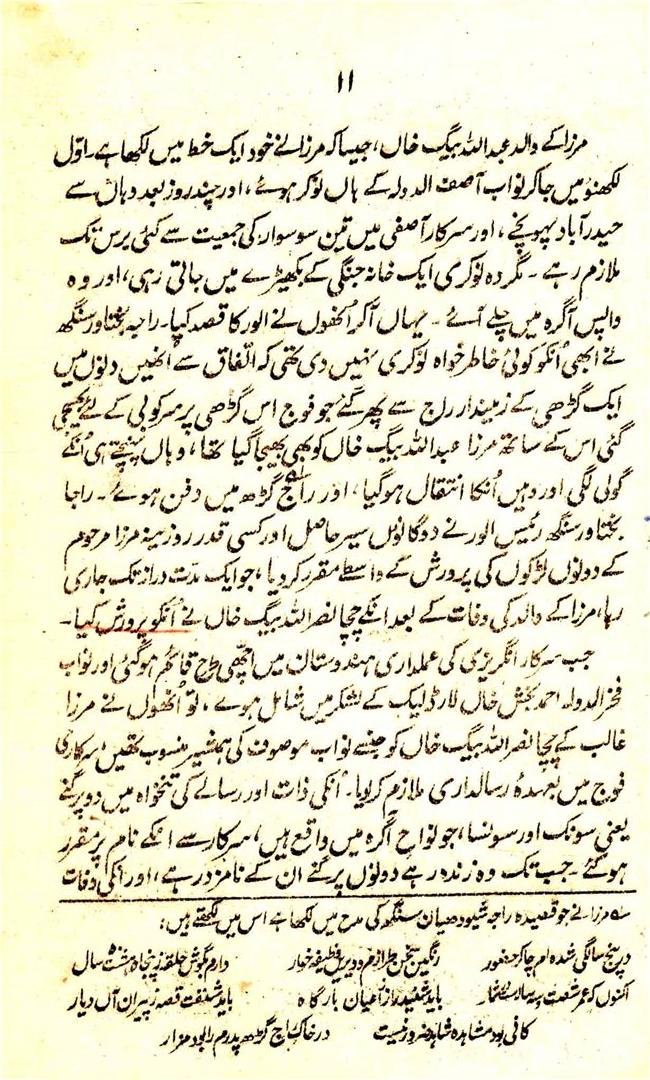 ۱۱
مرزا کے والد عبداللہ بیگ خاں، جیسا کہ مرزا نے خود ایک خط میں لکھا ہے۔ اوّل
لکھنؤ میں جاکر نواب آصف الدولہ کے ہاں نوکر ہوئے، اور چند روز بعد وہاں سے
حیدرآباد پہونچے، اور سرکار آصفی میں تین سو سوار کی جمعیت سے کئی برس تک
ملازم رہے۔ مگر وہ نوکری ایک خانہ جنگی کے بکھیڑے میں جاتی رہی، اور وہ
واپس آگرہ میں چلے آئے۔ یہاں آکر اُنھوں نے الور کا قصد کیا۔ راجہ بختاور سنگھ
نے ابھی اُنکو کوئی خاطر خواہ نوکری نہیں دی تھی کہ اتفاق سے اُنھیں دنوں میں
ایک گڑھی کے زمیندار راج سے پھر گئے جو فوج اس گڑھی پر سرکوبی کے لئے بھیجی
گئی اس کے ساتھ مرزا عبداللہ بیگ خاں کو بھی بھیجا گیا تھا، وہاں پہنچتے ہی اُنکے
گولی لگی اور وہیں اُنکا انتقال ہوگیا، اور راج گڑھ میں دفن ہوئے۔ راجا
بختاور سنگھ رئیس الور نے دو گانوں سیر حاصل اور کسی قدر روزینہ مرزا مرحوم
کے دونوں لڑکوں کی پرورش کے واسطے مقرر کردیا، جو ایک مدّت دراز تک جاری
رہا، مرزا کے والد کی وفات کے بعد انکے چچا نصراللہ بیگ خاں نے اُنکو پرورش کیا۔
جب سرکار انگریزی کی عملداری ہندوستان میں اچھی طرح قائم ہوگئی اور نواب
فخر الدولہ احمد بخش خاں لارڈ لیک کے لشکر میں شامل ہوے، تو اُنھوں نے مرزا
غالب کے چچا نصراللہ بیگ خاں کو جنسے نواب موصوف کی ہمشیر منسوب تھیں، سرکاری
فوج میں بعہدۂ رسالداری ملازم کرا دیا۔ اُنکی ذات اور رسالے کی تنخواہ میں دو پرگنے
یعنی سونک اور سونسا، جو نواح آگرہ میں واقع ہیں، سرکار سے انکے نام پر مقرر
ہوگئے۔ جب تک وہ زندہ رہے دونوں پرگنے ان کے نامزد رہے، اور انکی وفات
لہ مرزا نے جو قصیدہ راجہ شیودھیان سنگھ کی مدح میں لکھا ہے اس میں لکھتے ہیں:
در پنج سالگی شدہ ام چاکر حضور رنگین سخن طرازم و دیرین وظیفہ خوار دارم بگوش حلقہ ز پنجاہ و ہشت سال
اکنوں کہ عمر شصت و سہ باید شنید از اعیان بارگاہ باید شنفت قصہ ز پیران آں دیار
کافی بود مشاہدہ شاہد ضرور نیست در خاک راج گڑھ پدرم را بود مزار